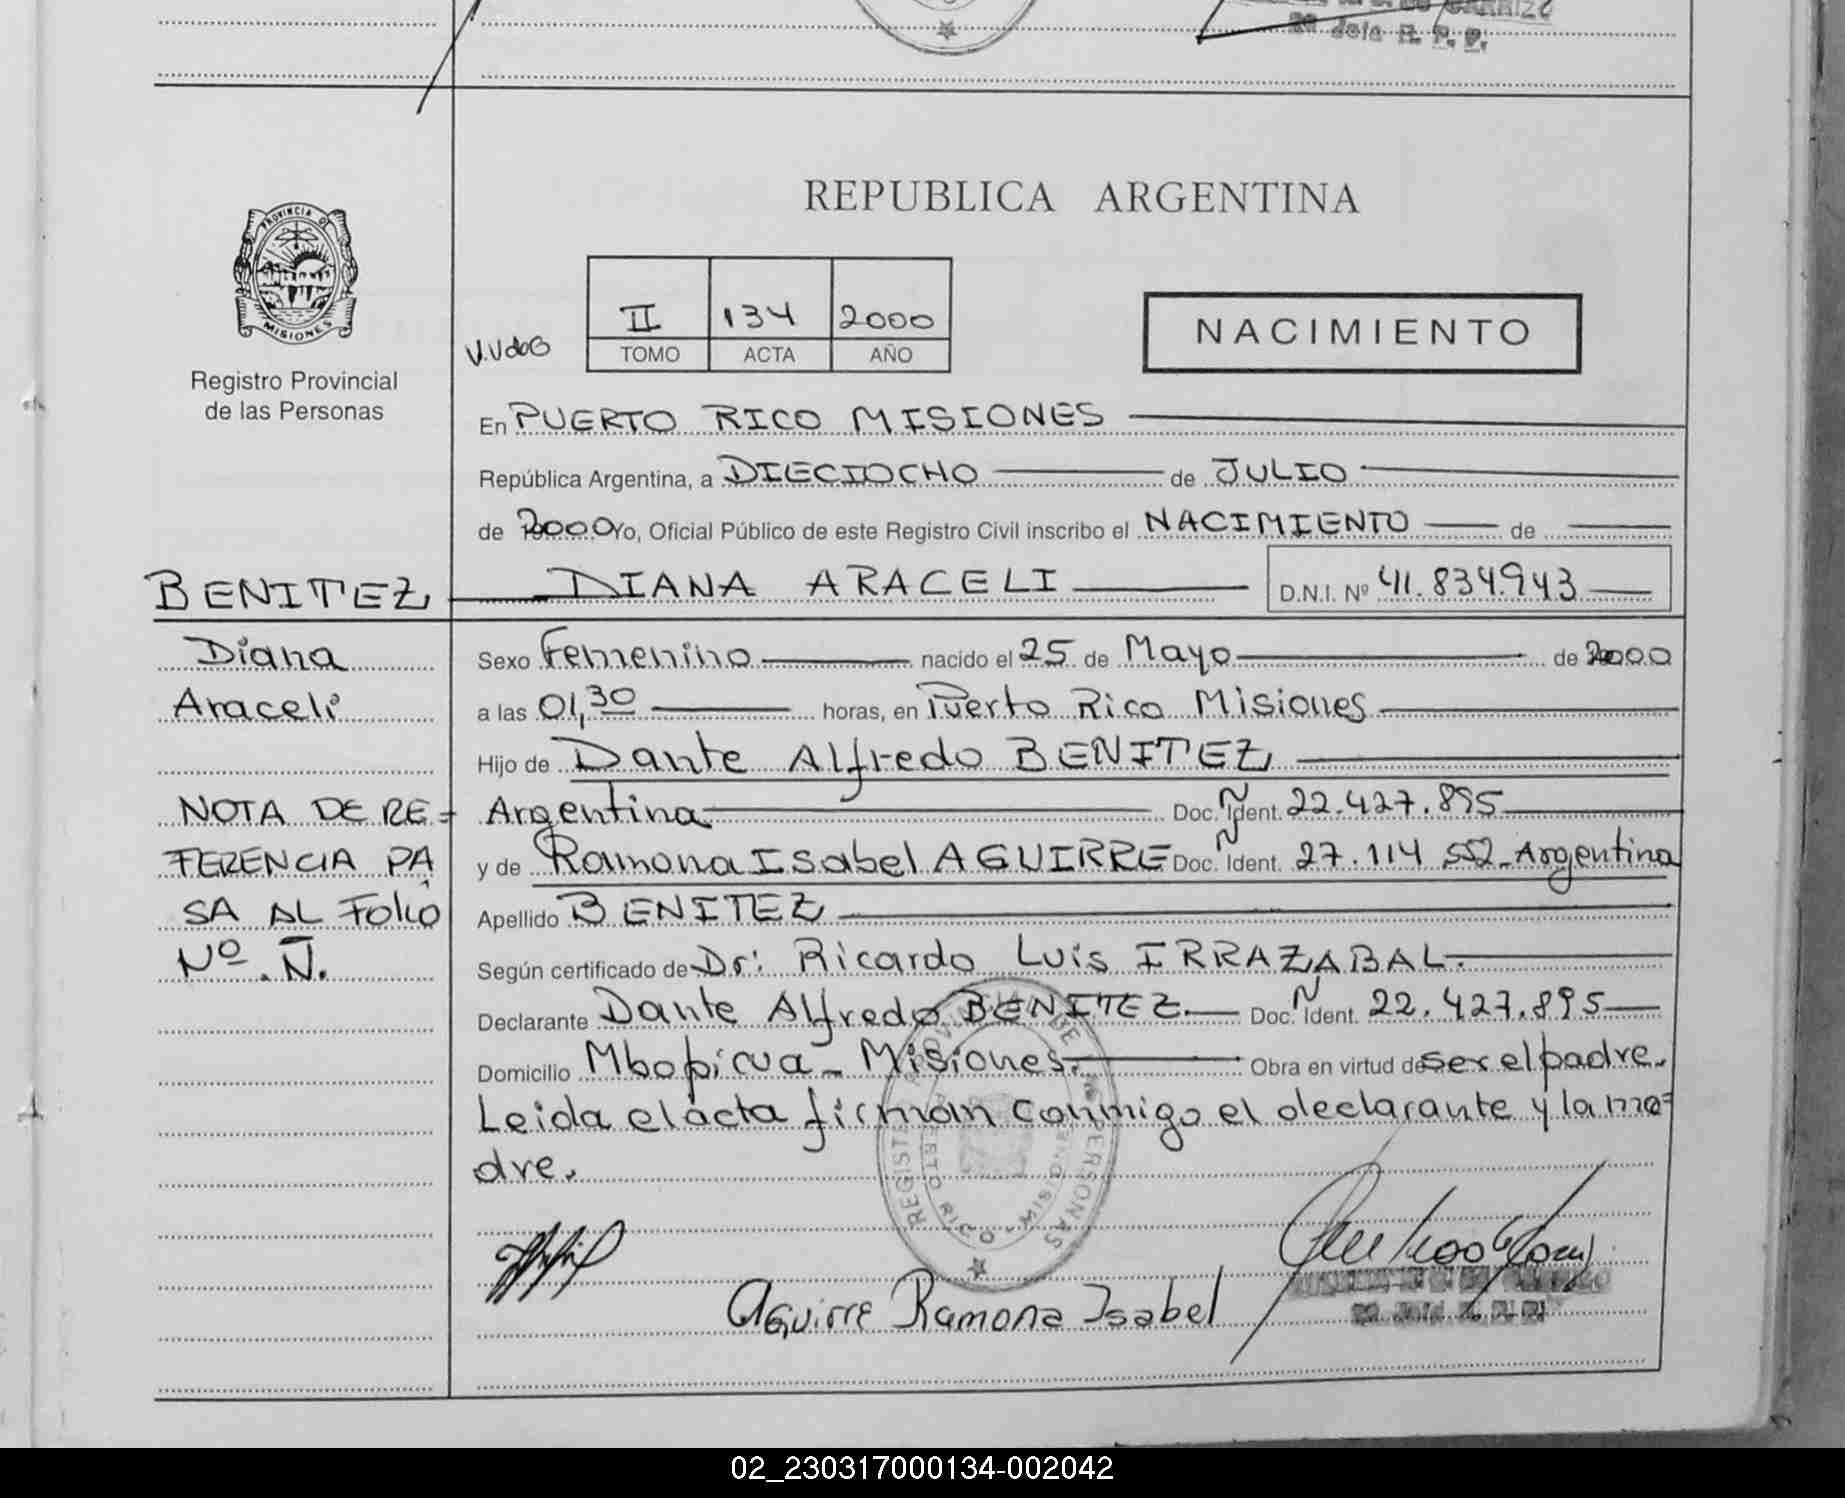 2º Jefe R. P. P.
PROVINCIA DE
MISIONES
Registro Provincial
de las Personas
REPUBLICA ARGENTINA
II 134 2000
TOMO ACTA AÑO
NACIMIENTO
En PUERTO RICO MISIONES
República Argentina, a DIECIOCHO de JULIO
de 2000 Yo, Oficial Público de este Registro Civil inscribo el NACIMIENTO de
BENITEZ DIANA ARACELI D.N.I. Nº 41.834.943
Diana
Araceli
NOTA DE RE=
FERENCIA PA
SA AL FOLIO
Nº N.
Sexo Femenino nacido el 25 de Mayo de 2000
a las 01,30 horas, en Puerto Rico Misiones
Hijo de Dante Alfredo BENITEZ
Argentina Doc. Ident. 22.427.895
y de Ramona Isabel AGUIRRE Doc. Ident. 27.114.552 Argentina
Apellido BENITEZ
Según certificado de Dr: Ricardo Luis IRRAZABAL.
Declarante Dante Alfredo BENITEZ. Doc. Ident. 22.427.895
Domicilio Mbopicua - Misiones. Obra en virtud de ser el padre.
Leida el acta firman conmigo el declarante y la ma=
dre.
REGISTRO PROVINCIAL DE LAS PERSONAS
PUERTO RICO - MISIONES
Aguirre Ramona Isabel
02_230317000134-002042